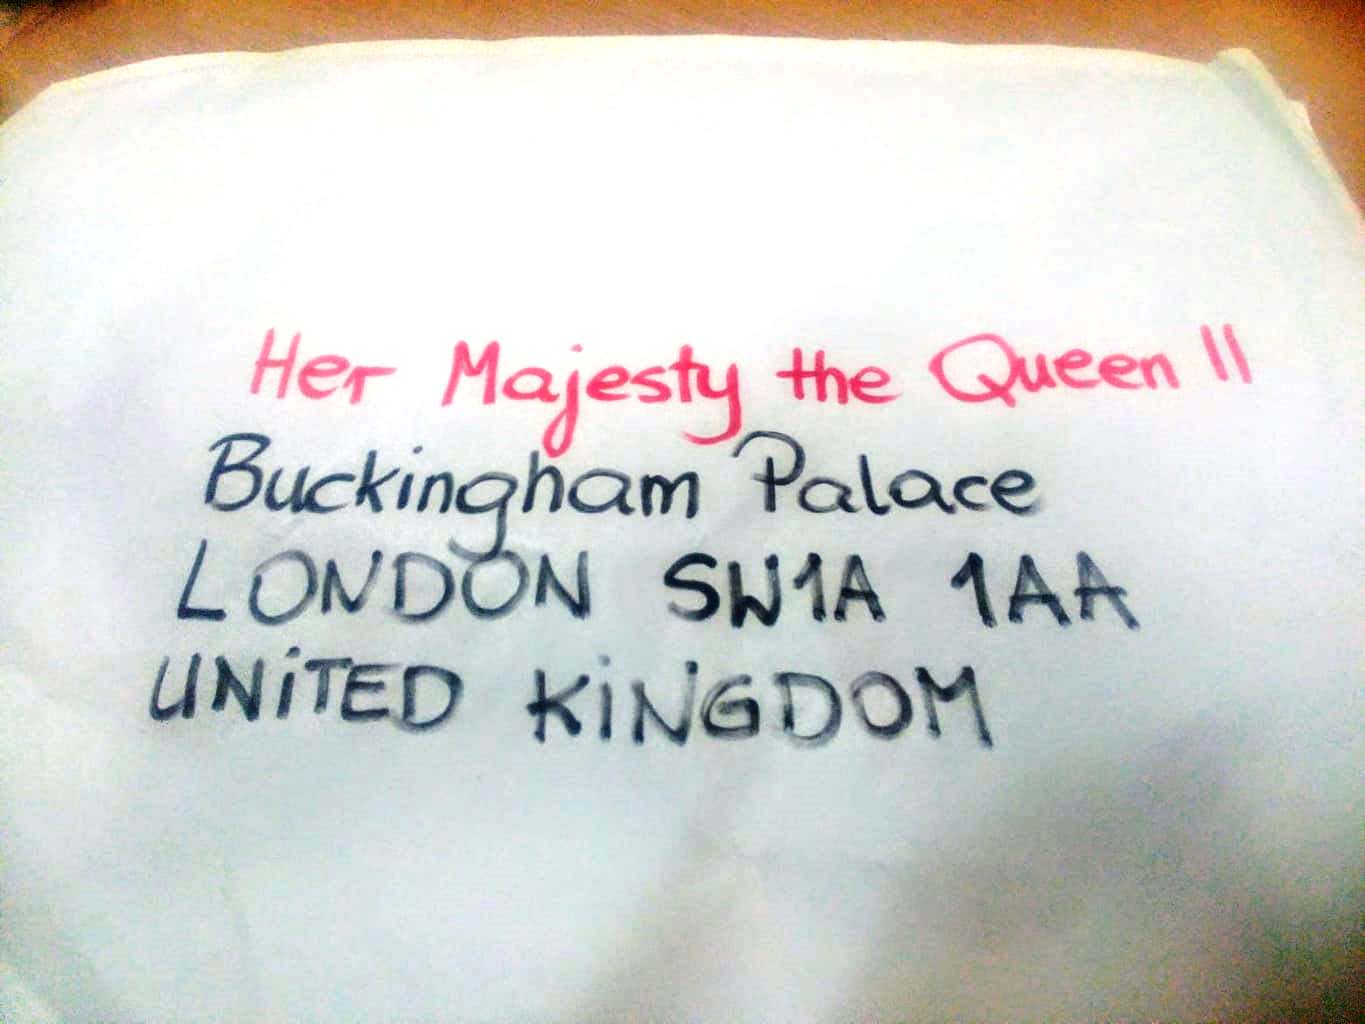 Her Majesty the Queen II
Buckingham Palace
LONDON SW1A 1AA
UNiTED KiNGDOM